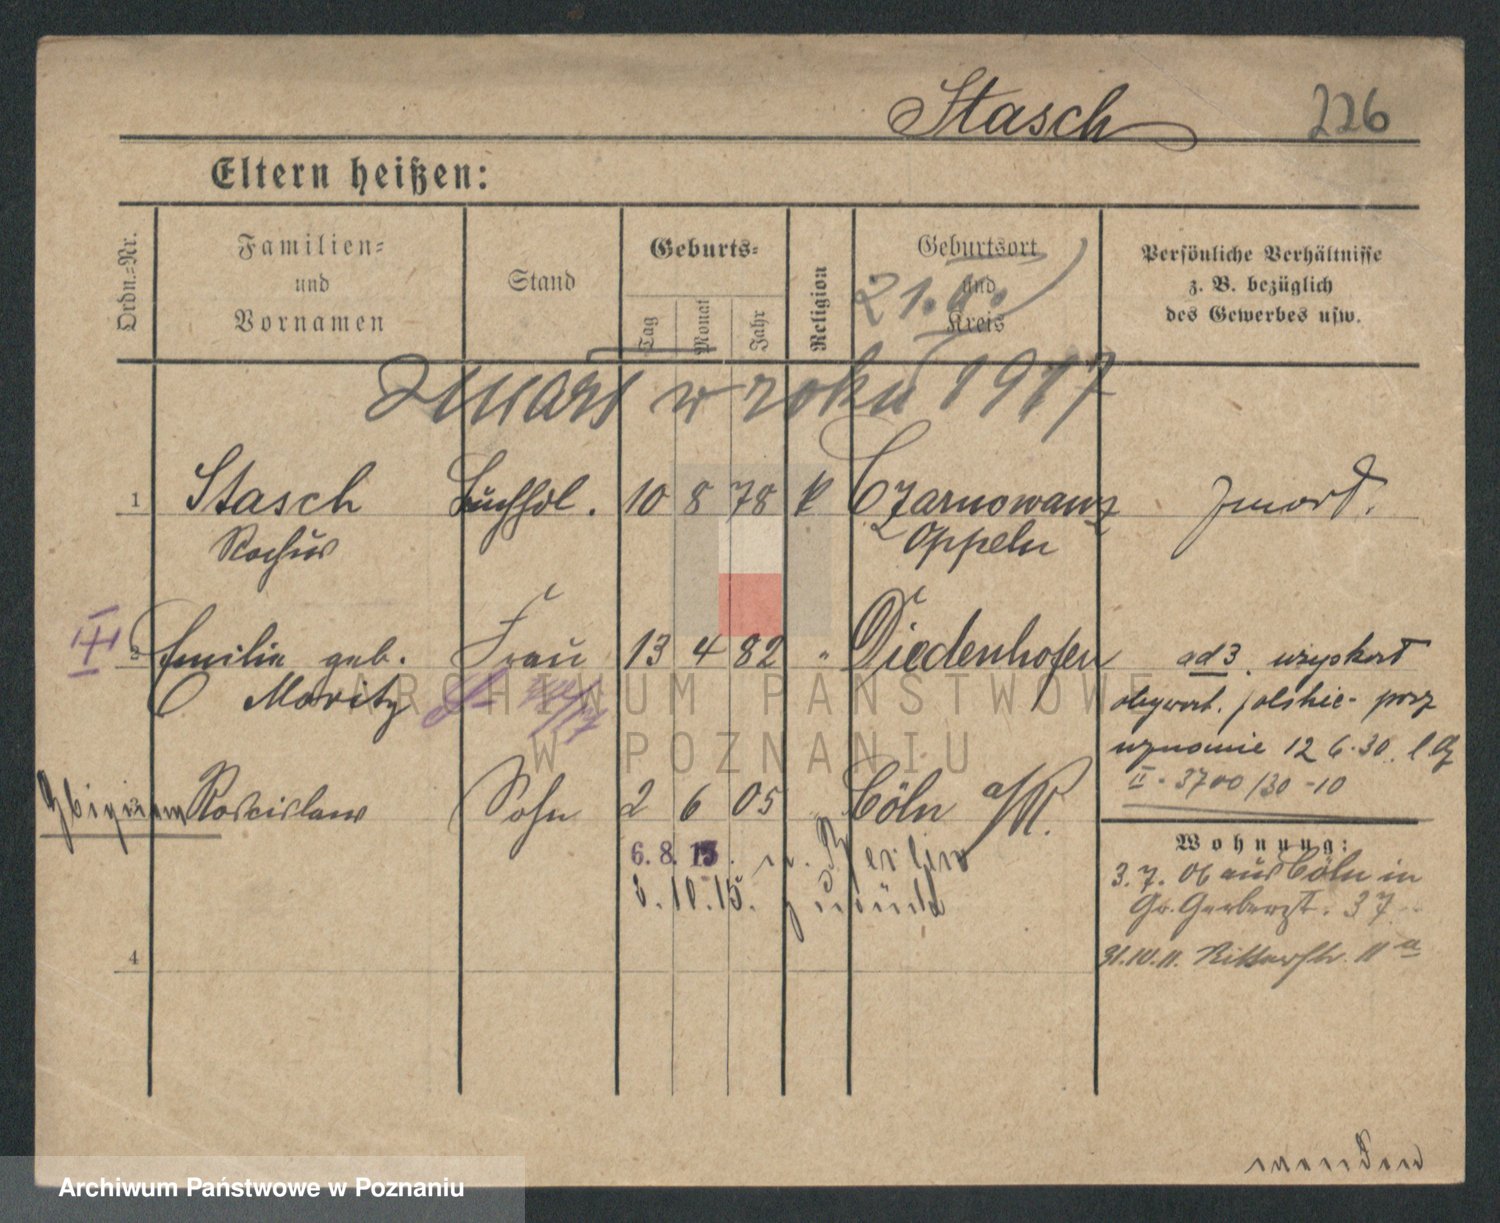 Stasch 226
Eltern heißen:
Ordn.=Nr.
Familien=
und
Vornamen
Stand
Geburts=
Tag
Monat
Jahr
Religion
Geburtsort
und
Kreis
21.6.
Persönliche Verhältnisse
z. B. bezüglich
des Gewerbes usw.
Zmarł w roku 1917
1 Stasch Buchhdl. 10 8 78 k Czarnowanz
Rochus Oppeln
III 2 Emilie geb. Frau 13 4 82 " Diedenhofen ad 3. uzyskał
Moritz obywat. polskie przez
uznanie 12 6.30.
II - 3700/30-10
Zbigniew Roscislaw Sohn 2 6 05 Cöln a/R.
Wohnung:
6.8.15. n. Berlin
3.7.06 aus Cöln in
3.10.15. zurück
Gr. Gerberst. 37
31.10.11. Ritterstr. 11 a
4
wenden
ARCHIWUM PAŃSTWOWE
W POZNANIU
Archiwum Państwowe w Poznaniu